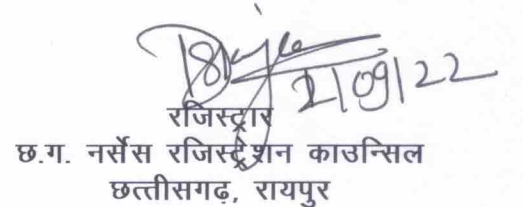 2/09/22
रजिस्ट्रार
छ.ग. नर्सेस रजिस्ट्रेशन काउन्सिल
छत्तीसगढ़, रायपुर